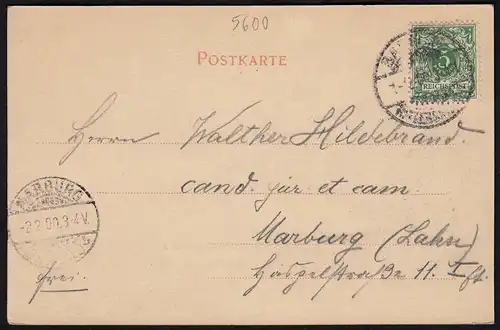 5600
POSTKARTE
5
REICHSPOST
Herrn Walther Hildebrand.
cand. jur et cam.
Marburg (Lahn)
Hospitalstraße 11. I
MARBURG
-2.2.00.3-4V.
frei.